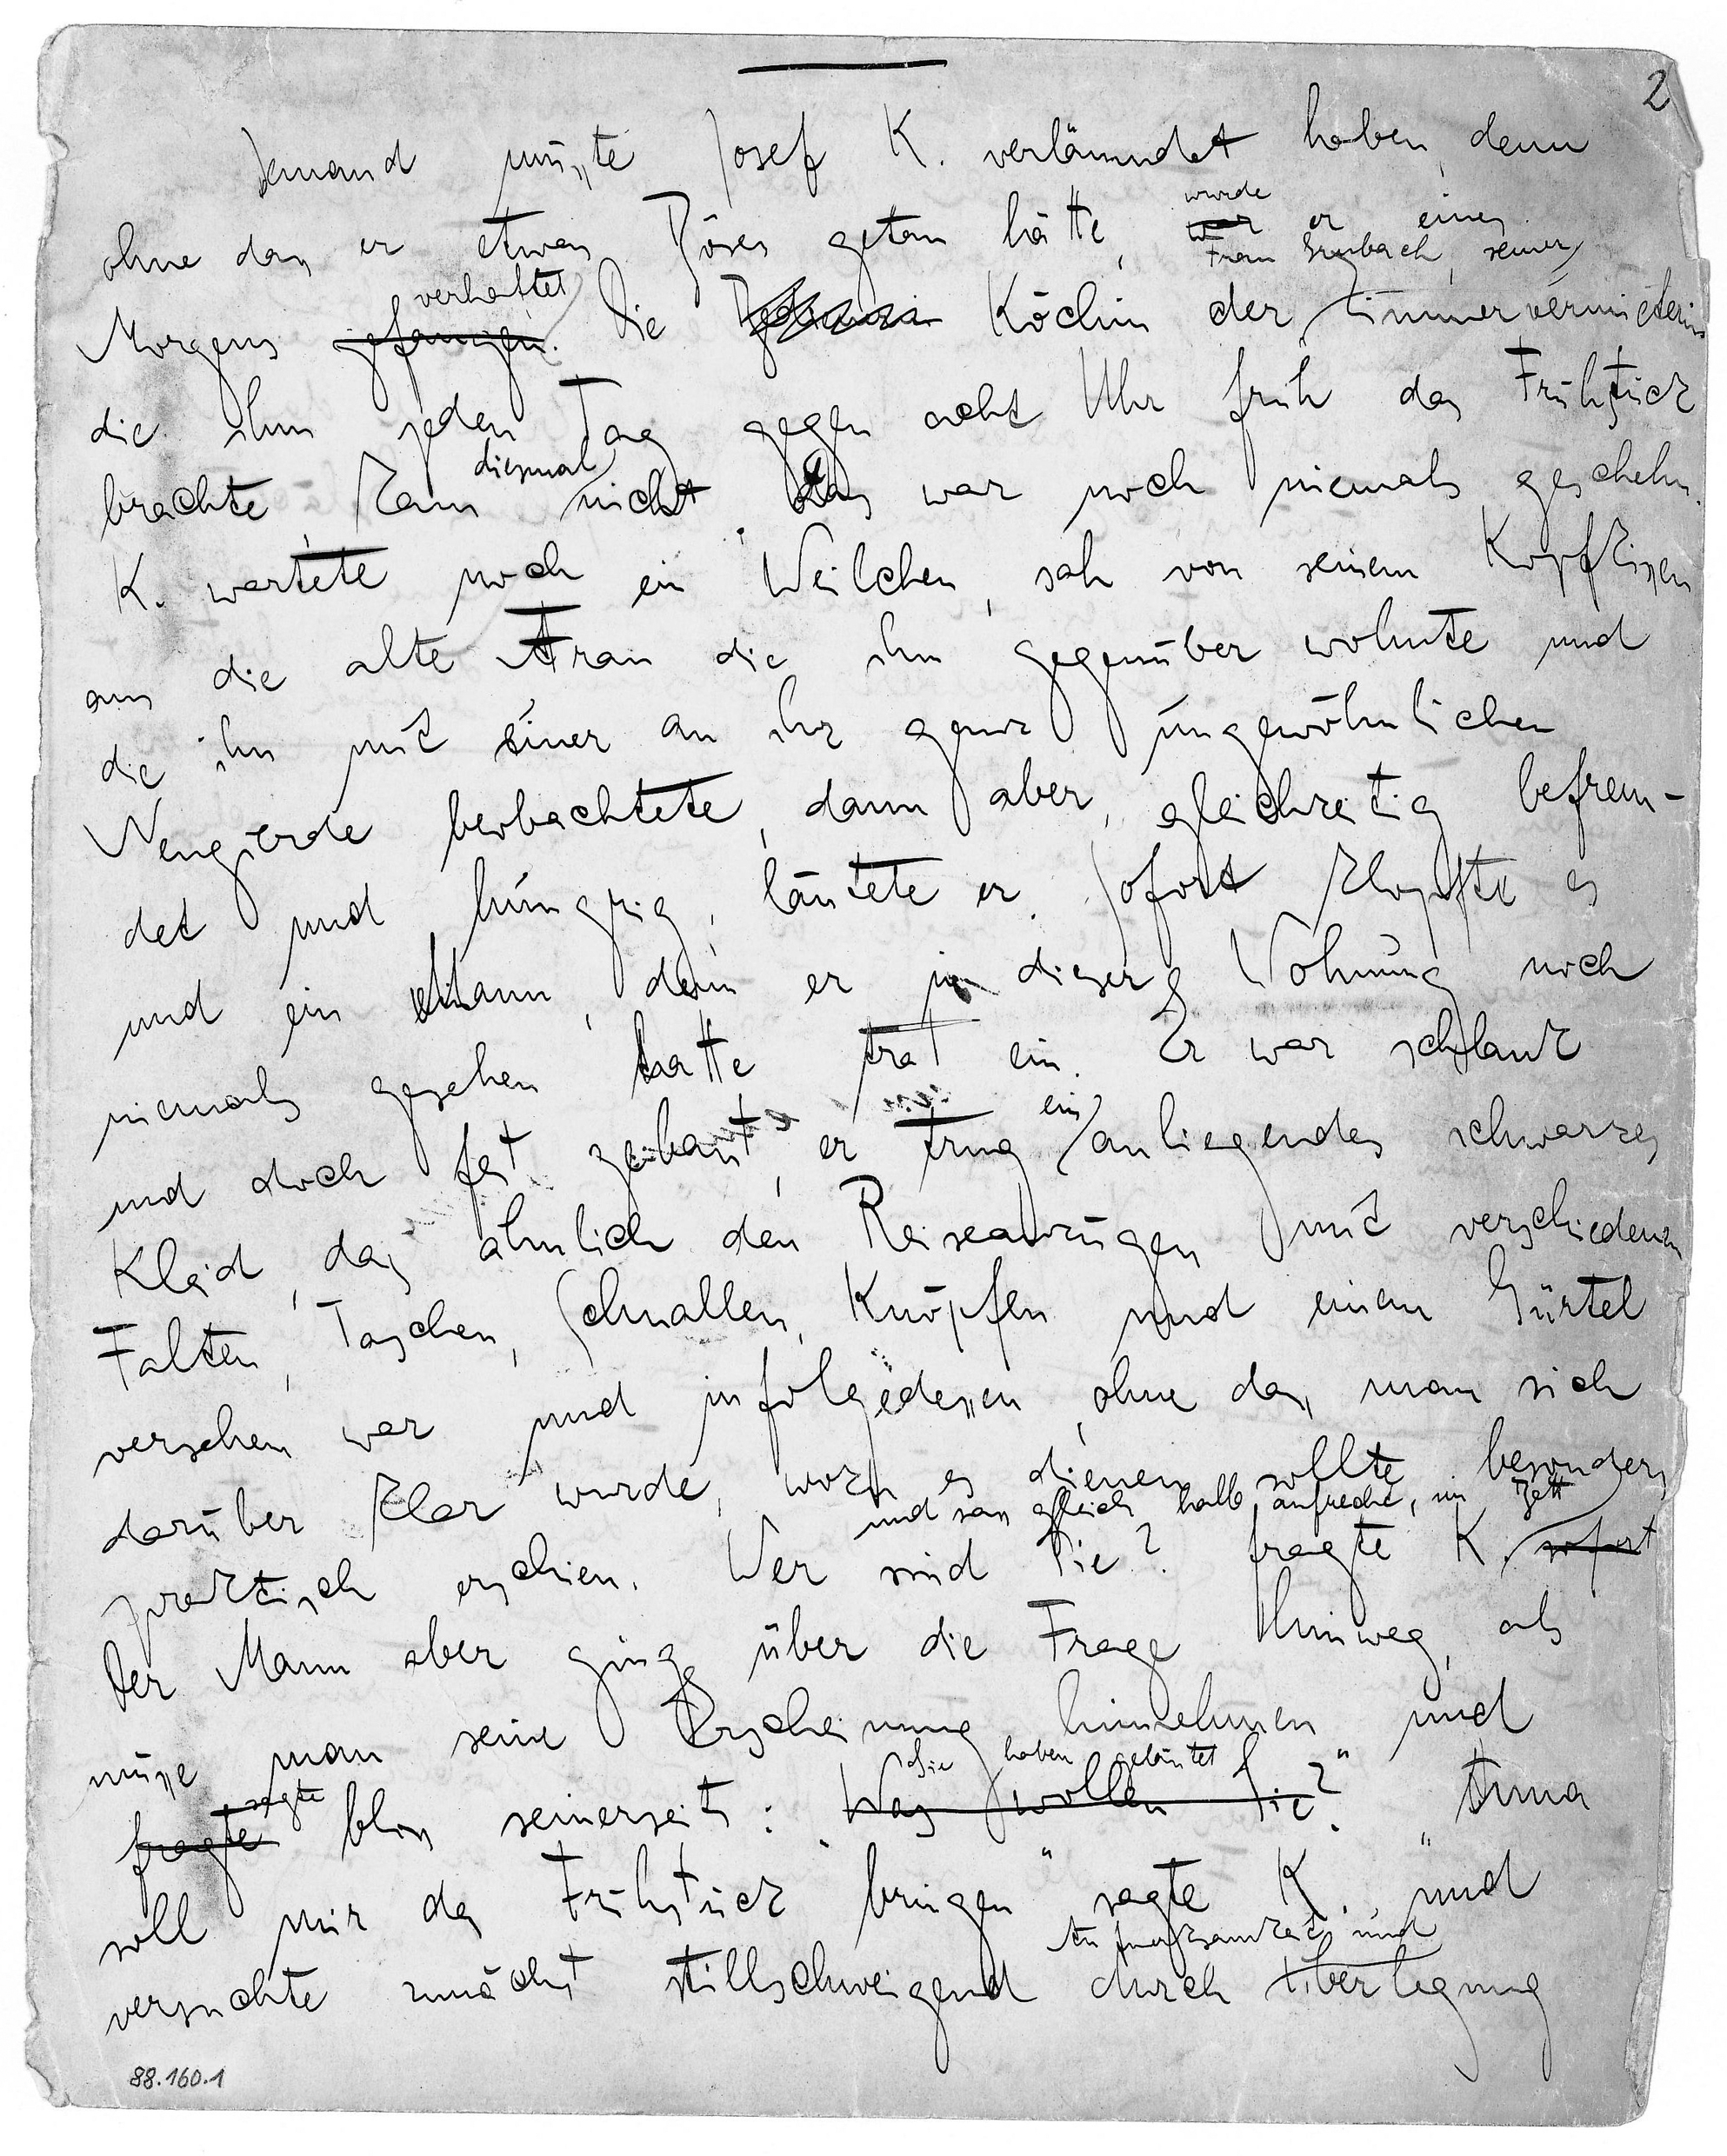 2
Jemand musste Josef K. verläumdet haben, denn
wurde
ohne dass er etwas Böses getan hätte, war er eines
Frau Grubach, seiner
verhaftet
Morgens gefangen. Die Köchin der Zimmervermieterin
die ihm jeden Tag gegen acht Uhr früh das Frühstück
diesmal
brachte kam nicht. Das war noch niemals geschehn.
K. wartete noch ein Weilchen, sah von seinem Kopfkissen
aus die alte Frau die ihm gegenüber wohnte und
die ihn mit einer an ihr ganz ungewöhnlichen
Neugierde beobachtete, dann aber, gleichzeitig befrem-
det und hungrig, läutete er. Sofort klopfte es
und ein Mann, den er in dieser Wohnung noch
niemals gesehen hatte trat ein. Er war schlank
ein
und doch fest gebaut, er trug anliegendes schwarzes
Kleid, das ähnlich den Reiseanzügen mit verschiedenen
Falten, Taschen, Schnallen, Knöpfen und einem Gürtel
versehen war und infolgedessen, ohne dass man sich
darüber klar wurde, wozu es dienen sollte, besonders
und sass gleich halb aufrecht im Bett
praktisch erschien. Wer sind Sie? fragte K. sofort
Der Mann aber ging über die Frage hinweg, als
müsse man seine Erscheinung hinnehmen und
sagte Sie haben geläutet
fragte bloss seinerseits: Was wollen Sie?" Anna
soll mir das Frühstück bringen" sagte K. und
Aufmerksamkeit und
versuchte zunächst stillschweigend durch Überlegung
88.160.1